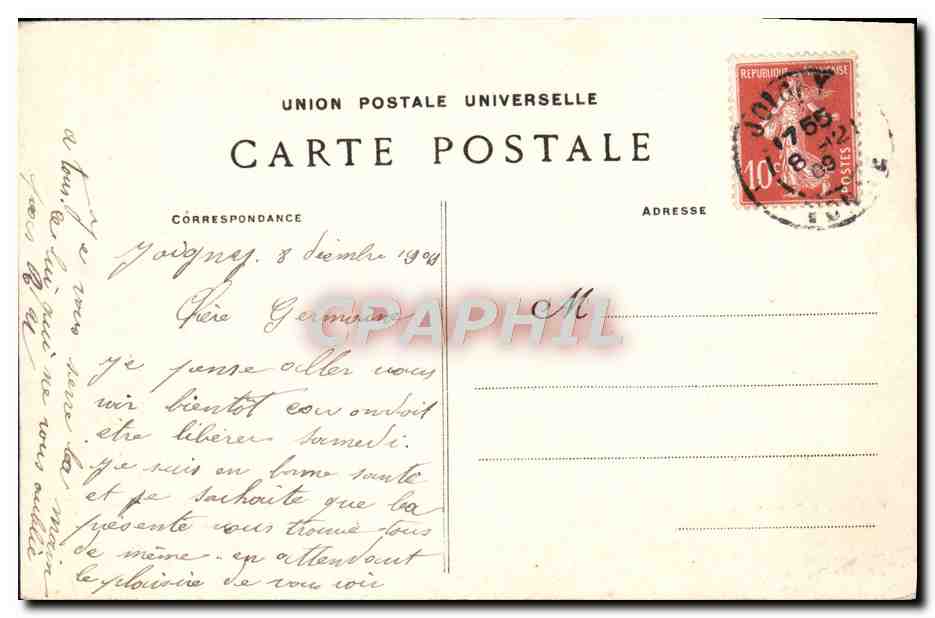 UNION POSTALE UNIVERSELLE
CARTE POSTALE
REPUBLIQUE FRANÇAISE
10 c
POSTES
17 55
8 -12
09
YONNE
CORRESPONDANCE
ADRESSE
M
CPAPHIL
Joigny. 8 décembre 1909
Chère Germaine
Je pense aller vous
voir bientôt car on doit
être libérer samedi.
Je suis en bonne santé
et je souhaite que la
présente vous trouve tous
de même. en attendant
le plaisire de vous voir
Je vous serre la main
a tous. celui qui ne vous oublie
pas